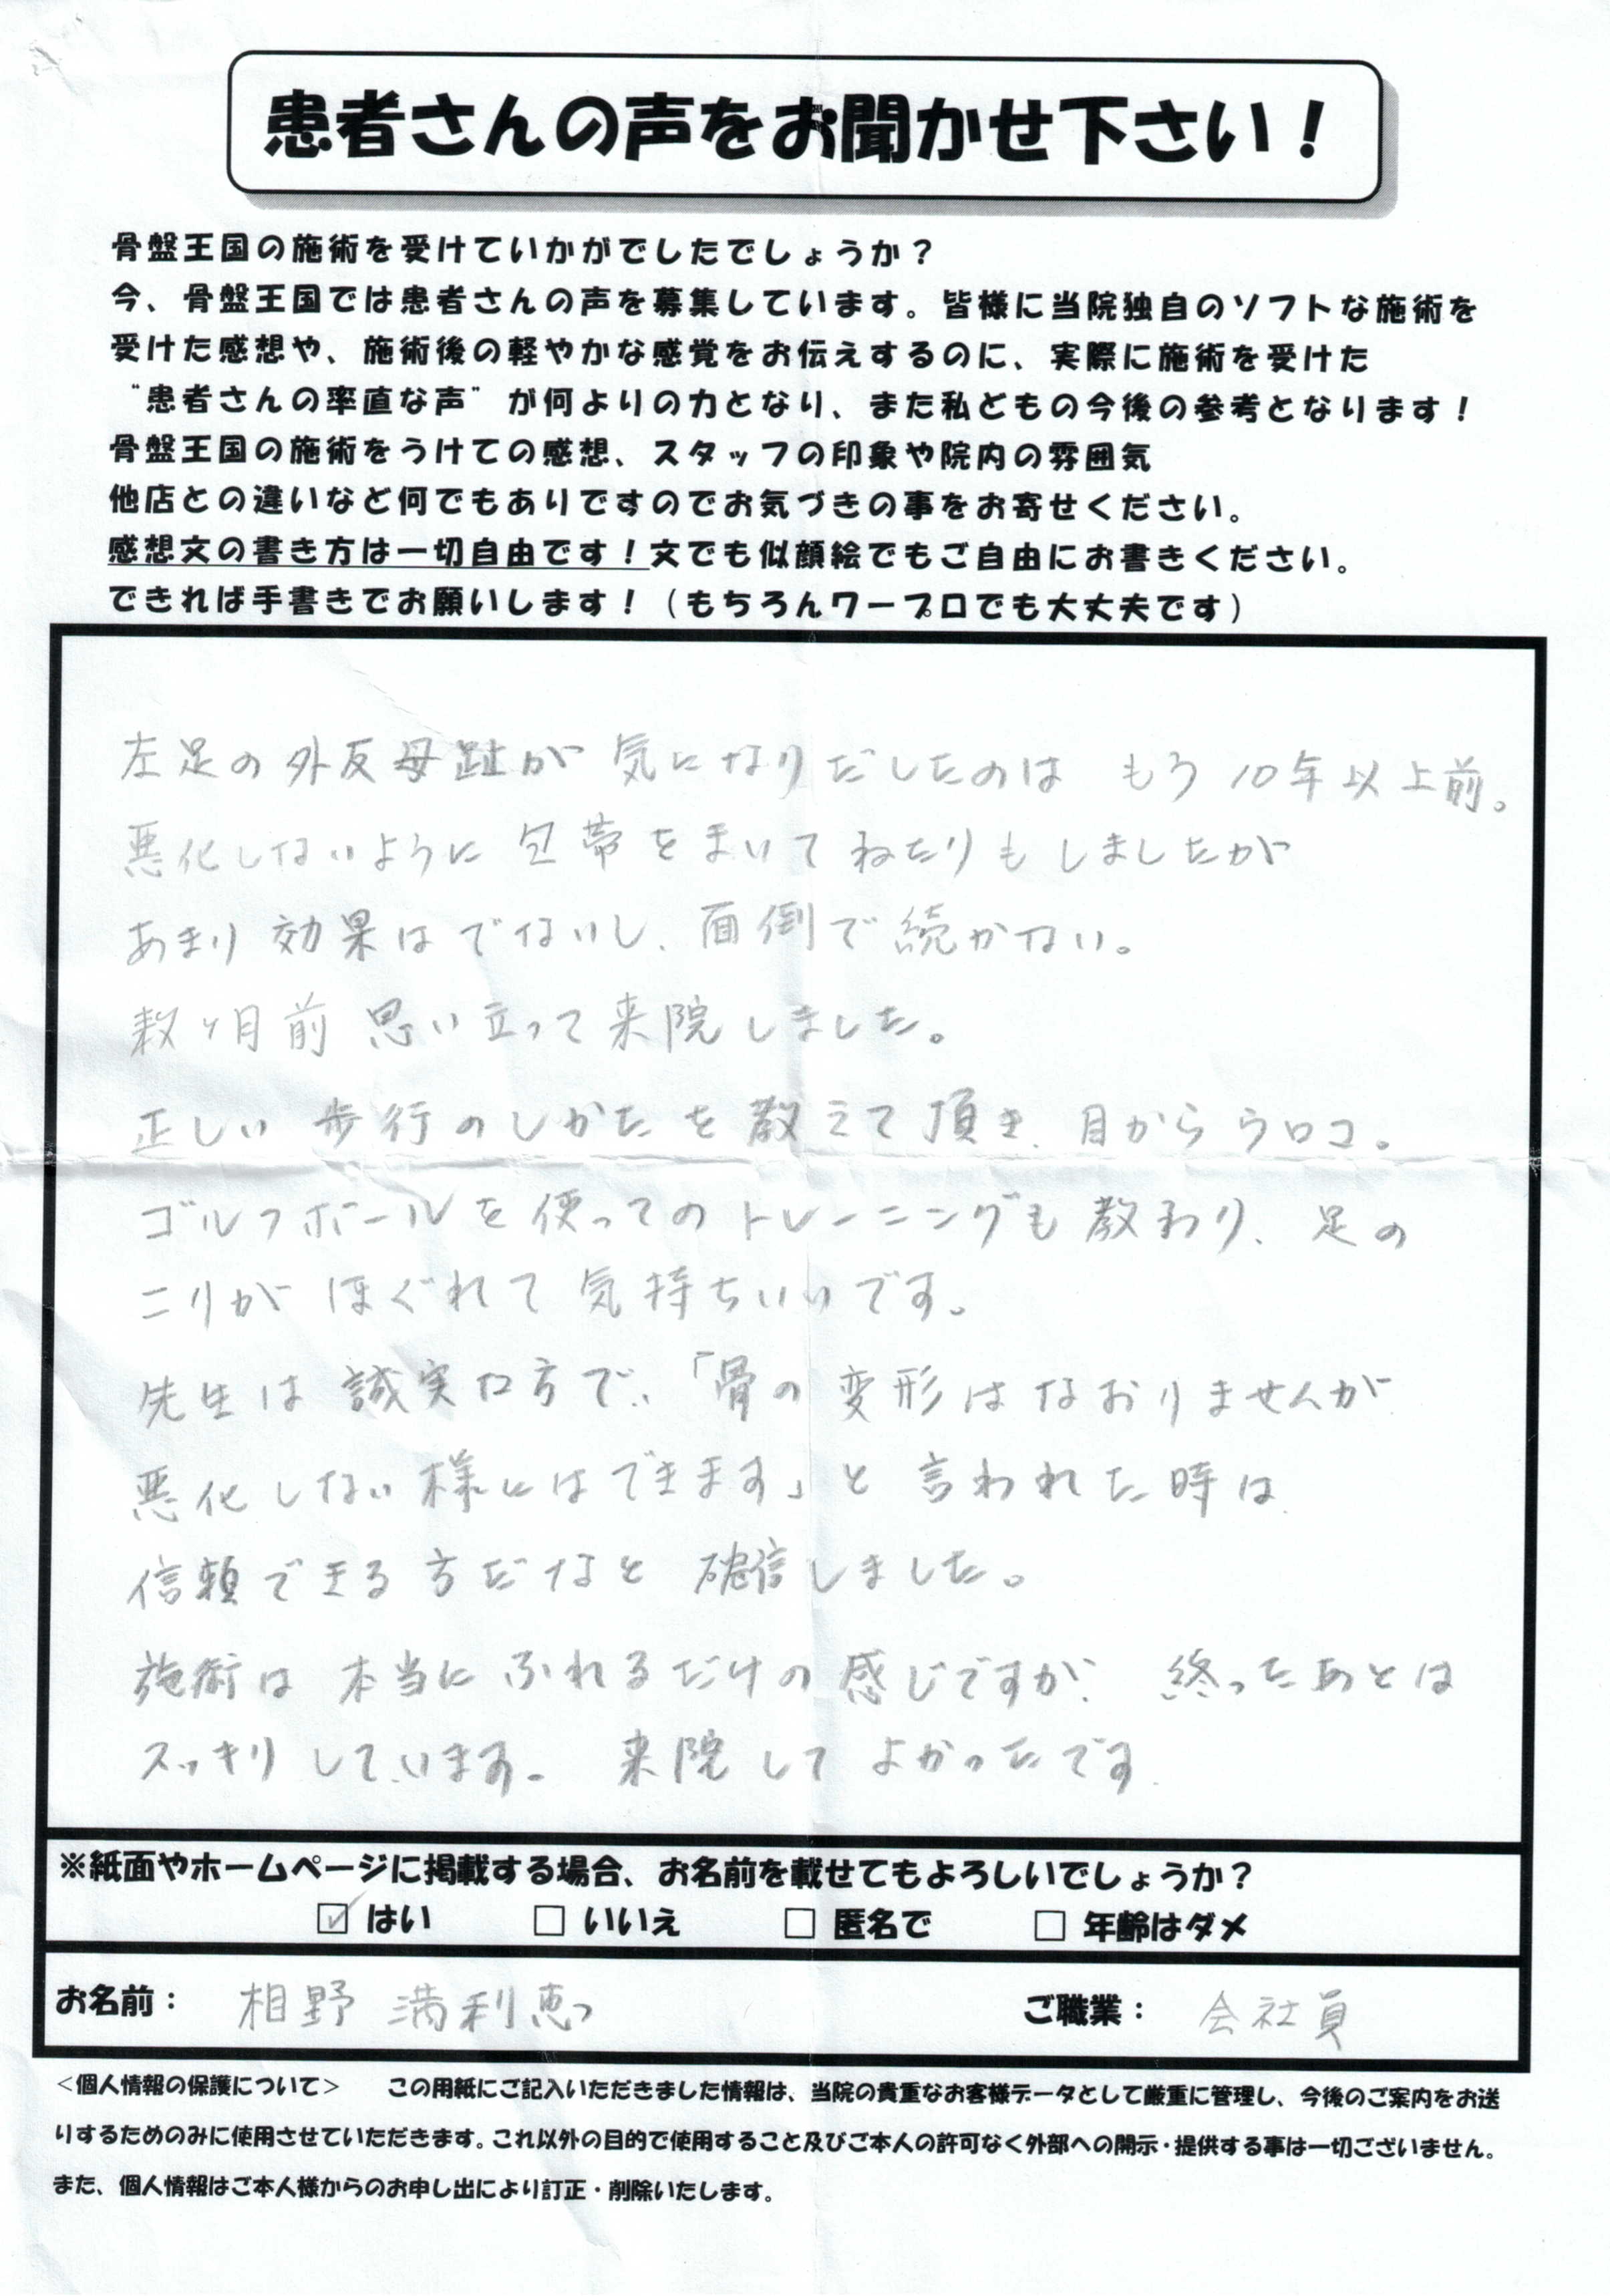 患者さんの声をお聞かせ下さい！
骨盤王国の施術を受けていかがでしたでしょうか？
今、骨盤王国では患者さんの声を募集しています。皆様に当院独自のソフトな施術を
受けた感想や、施術後の軽やかな感覚をお伝えするのに、実際に施術を受けた
“患者さんの率直な声”が何よりの力となり、また私どもの今後の参考となります！
骨盤王国の施術をうけての感想、スタッフの印象や院内の雰囲気
他店との違いなど何でもありですのでお気づきの事をお寄せください。
感想文の書き方は一切自由です！文でも似顔絵でもご自由にお書きください。
できれば手書きでお願いします！（もちろんワープロでも大丈夫です）
左足の外反母趾が 気になりだしたのは もう10年以上前。
悪化しないように包帯をまいてねたりもしましたが
あまり効果はでないし、面倒で続かない。
数ヶ月前 思い立って来院しました。
正しい 歩行のしかたを教えて頂き、目からウロコ。
ゴルフボールを使ってのトレーニングも教わり、足の
こりがほぐれて気持ちいいです。
先生は誠実な方で、「骨の変形はなおりませんが
悪化しない様にはできます」と言われた時は
信頼できる方だなと 確信しました。
施術は 本当にふれるだけの感じですが、 終ったあとは
スッキリしています。 来院してよかったです
※紙面やホームページに掲載する場合、お名前を載せてもよろしいでしょうか？
☑ はい □ いいえ □ 匿名で □ 年齢はダメ
お名前： 相野 満利恵 ご職業： 会社員
＜個人情報の保護について＞ この用紙にご記入いただきました情報は、当院の貴重なお客様データとして厳重に管理し、今後のご案内をお送
りするためのみに使用させていただきます。これ以外の目的で使用すること及びご本人の許可なく外部への開示・提供する事は一切ございません。
また、個人情報はご本人様からのお申し出により訂正・削除いたします。